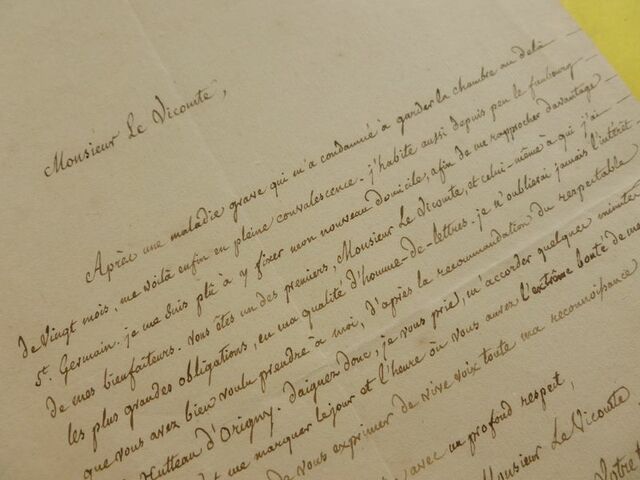 Monsieur Le Vicomte,
Après une maladie grave qui m'a condamné à garder la chambre au delà
de vingt mois, me voilà enfin en pleine convalescence. j'habite aussi depuis peu le faubourg
St. Germain. je me suis plû à y fixer mon nouveau domicile, afin de me rapprocher davantage
de mes bienfaiteurs. Vous êtes un des premiers, Monsieur Le Vicomte, et celui-même à qui j'ai
les plus grandes obligations, en ma qualité d'homme-de-lettres. je n'oublierai jamais l'intérêt
que vous avez bien voulu prendre à moi, d'après la recommandation du respectable
Hutteau d'Origny. Daignez donc, je vous prie, m'accorder quelques minutes
me marquer le jour et l'heure où vous aurez l'extrême bonté de me
de vous exprimer de vive voix toute ma reconnoissance
avec un profond respect,
Monsieur Le Vicomte
Votre